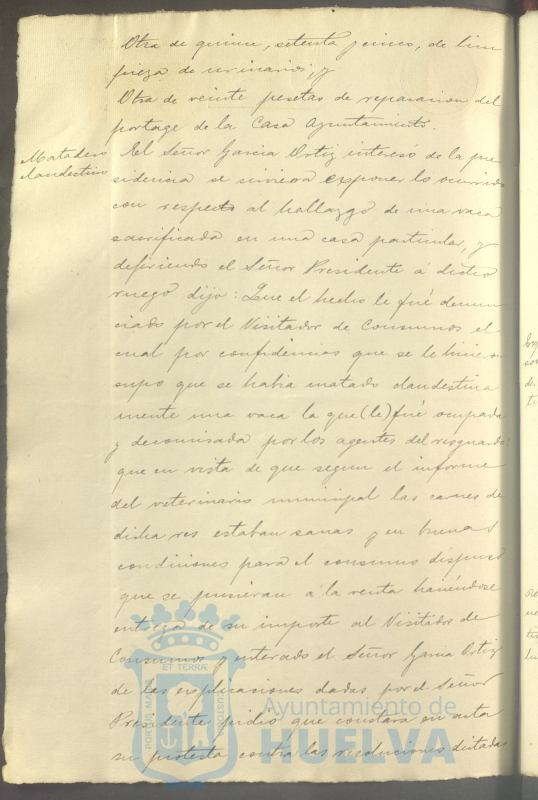 Otra de quince, setenta y cinco, de lim
pieza de urinarios, y
Otra de veinte pesetas de reparacion del
portage de la Casa Ayuntamiento.
Matadero
clandestino
El Señor Garcia Ortiz interesó de la pre
sidencia se sirviera exponer lo ocurrido
con respecto al hallazgo de una vaca
sacrificada en una casa particular, y
defiriendo el Señor Presidente á dicho
ruego dijo: Que el hecho le fué denun
ciado por el Visitador de Consumos el
cual por confidencias que se le hicieron
supo que se habia matado clandestina
mente una vaca la que (le) fué ocupada
y decomisada por los agentes del resguardo:
que en vista de que segun el informe
del veterinario municipal las carnes de
dicha res estaban sanas y en buenas
condiciones para el consumo dispuso
que se pusieran á la venta haciéndose
entrega de su importe al Visitador de
Consumos y enterado el Señor Garcia Ortiz
de las explicaciones dadas por el Señor
Presidente pidió que constara en acta
su protesta contra las resoluciones dictadas
ET TERRÆ
PORTUS MARIS
CUSTODIA
Ayuntamiento de
HUELVA